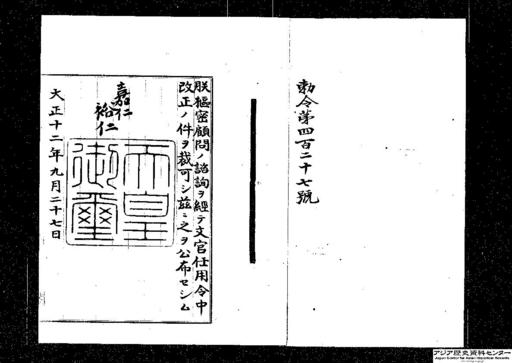 勅令第四百二十七號
朕樞密顧問ノ諮詢ヲ經テ文官任用令中
改正ノ件ヲ裁可シ茲ニ之ヲ公布セシム
嘉仁
裕仁
天皇
御璽
大正十二年九月二十七日
アジア歴史資料センター
Japan Center for Asian Historical Records